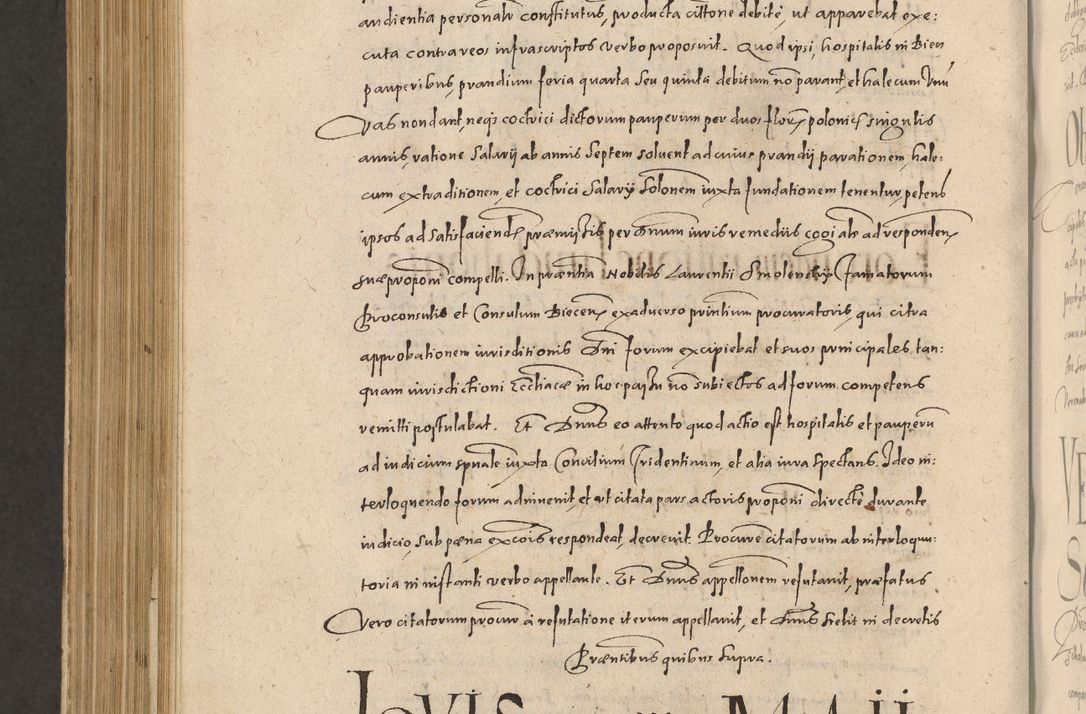 audientia personalr constitutus, producta cittone debite, ut apparebat exe:
cuta contra reos infrascriptos verbo proposuit. Quod ipsi, hospitalis in Biecz
pauperibus, prandium feria quarta seu quinta debitum no parant, et halecum unu
Vas non dant, neqз coctrici dictorum pauperum per duos floren polonicz singulis
annis, ratione Salarij ab annis septem soluent ad cuius prandij parationem, hale:
cum extraditionem, et coctrici Salarij Solonem iuxta fundationem tenentur, petens
ipsos ad satisfaciend præmissis per Dnum iuris remediis cogi als ad responden
suæ proponi compelli. In præntia Nobilis Laurentii Smolenskÿ Famatorum
Proconsulis et Consulum Biecen ex aduerso printium procuratoris, qui citra
approbationem iurisditionis Dni forum excipiebat et suos principales, tan:
quam iurisdictioni Ecctiacæ in hoc passu no subiectos ad forum competens
remitti postulabat. Et Dnus eo attento quod actio est hospitalis et pauperu
ad iudicium spuale iuxta Concilium Tridentinum, et alia iura spectans. Ideo in:
terloquendo forum adinuenit, et ut citata pars actoris proponi directe durante
iudicio, sub pæna excois respondeat, decreuit. Procure citatorum ab interloqu:
toria in instanti verbo appellante. Et Dnus appellonem refutauit, præfatus
Vero citatorum procur à refutatione iterum appellauit, et Dnus stetit in decretis
Præntibus quibus supra.
MAII